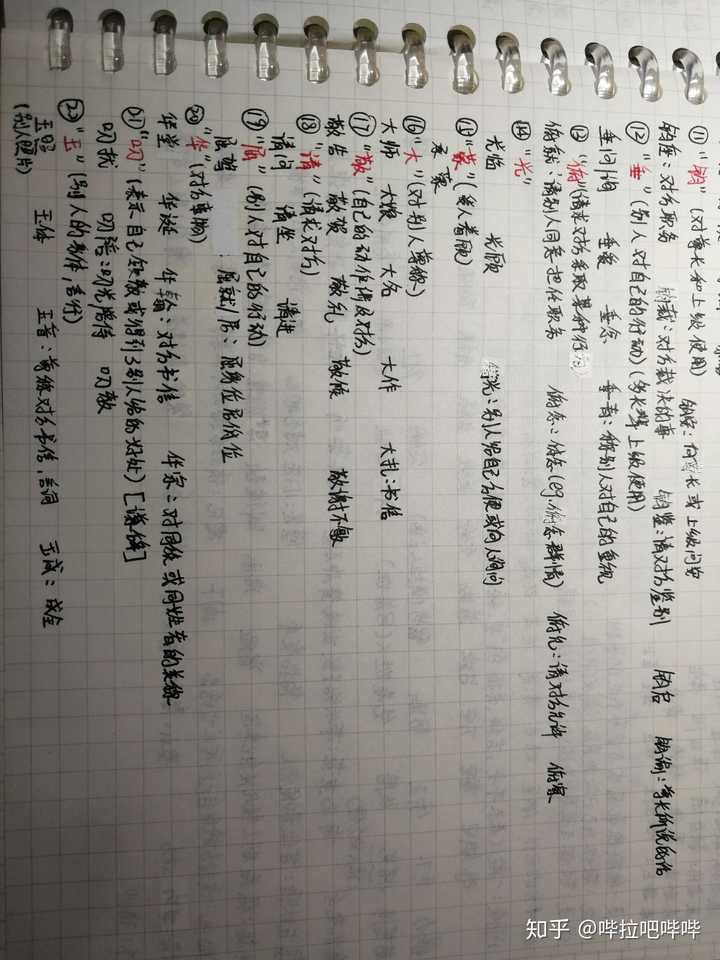 ⑪ "钧" (对尊长和上级使用)
钧座：对方职务 钧裁：对方裁决的事 钧鉴：请对方鉴别 钧启 钧谕：尊长所说的话
钧安：向尊长或上级问安
⑫ "垂" (别人对自己的行动)(多长辈上级使用)
垂问/询 垂爱 垂念 垂青：称别人对自己的重视
⑬ "俯" (请求对方采取某种行为)
俯就：请别人同意担任职务 俯念：体念(eg.俯念群情) 俯允：请对方允许 俯察
⑭ "光"
光临 光顾 借光：别人给自己方便或向人询问
⑮ "蒙" (受人看顾)
承蒙
⑯ "大" (对别人尊敬)
大师 大嫂 大名 大作 大札：书信
⑰ "敬" (自己的动作涉及对方)
敬告 敬贺 敬礼 敬候 敬谢不敏
⑱ "请" (请求对方)
请问 请坐 请进
⑲ "屈" (别人对自己的行动)
屈驾 屈就/居：屈身位居低位
⑳ "华" (对方事物)
华堂 华诞 华翰：对方书信 华宗：对同族或同姓者的美称
㉑ "叨" (表示自己领教或得到了别人给的好处) [谦辞]
叨扰 叨陪：叨光陪侍 叨教
㉒ "玉" (别人的身体，言行)
玉照 玉体 玉音：尊称对方书信，言词 玉成：成全
(别人照片)
知乎 @哔拉吧哔哔